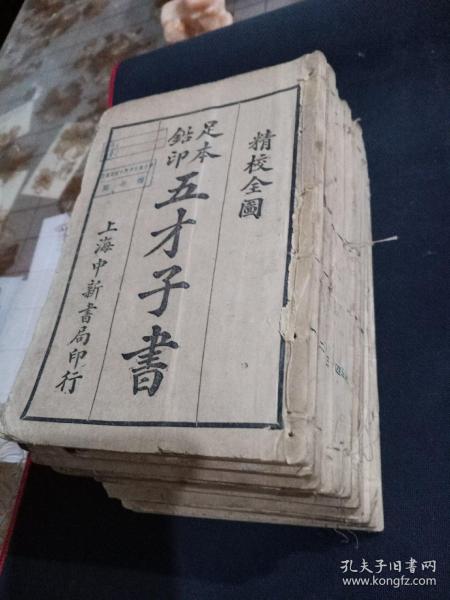 精校全圖
足本
鉛印
五才子書
上海申新書局印行
孔夫子旧书网
www.kongfz.com